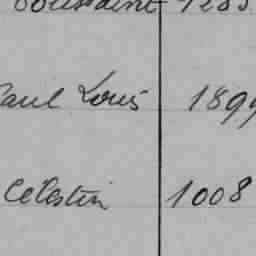 Paul Louis 1899
Celestin 1008